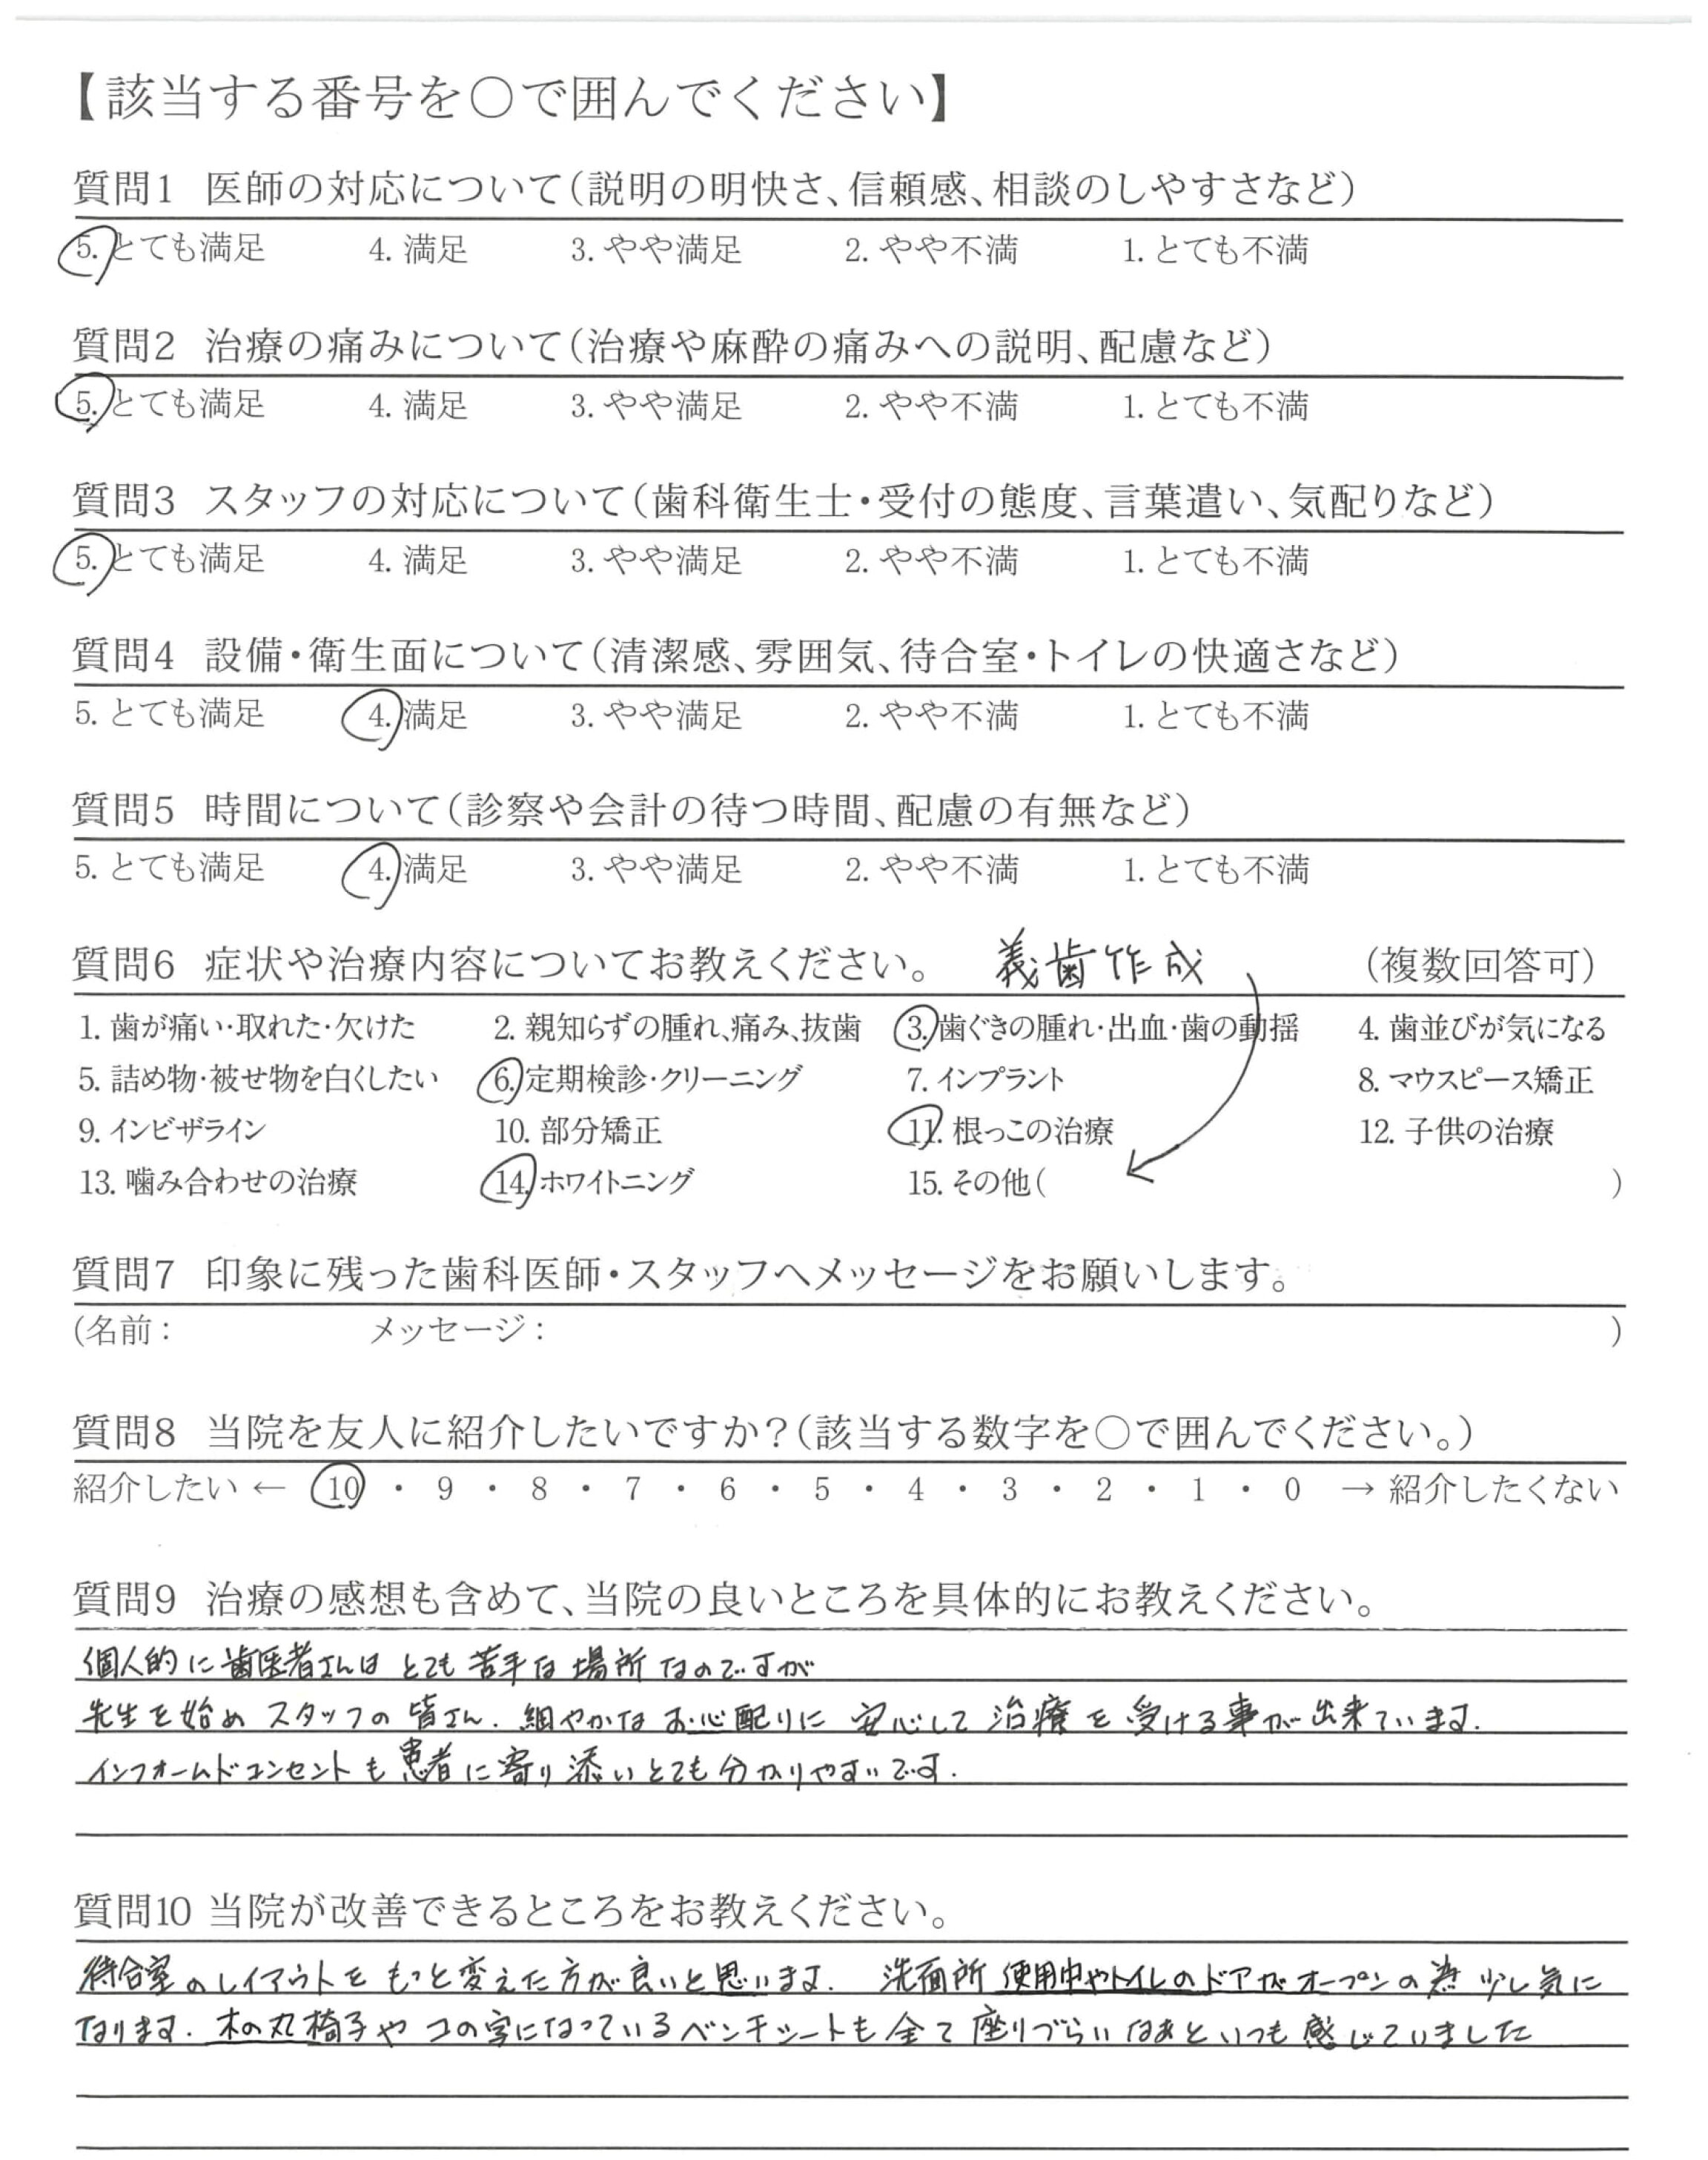 【該当する番号を○で囲んでください】
質問1 医師の対応について(説明の明快さ、信頼感、相談のしやすさなど)
5. とても満足 4. 満足 3. やや満足 2. やや不満 1. とても不満
質問2 治療の痛みについて(治療や麻酔の痛みへの説明、配慮など)
5. とても満足 4. 満足 3. やや満足 2. やや不満 1. とても不満
質問3 スタッフの対応について(歯科衛生士・受付の態度、言葉遣い、気配りなど)
5. とても満足 4. 満足 3. やや満足 2. やや不満 1. とても不満
質問4 設備・衛生面について(清潔感、雰囲気、待合室・トイレの快適さなど)
5. とても満足 4. 満足 3. やや満足 2. やや不満 1. とても不満
質問5 時間について(診察や会計の待つ時間、配慮の有無など)
5. とても満足 4. 満足 3. やや満足 2. やや不満 1. とても不満
質問6 症状や治療内容についてお教えください。 義歯作成 (複数回答可)
1. 歯が痛い・取れた・欠けた 2. 親知らずの腫れ、痛み、抜歯 3. 歯ぐきの腫れ・出血・歯の動揺 4. 歯並びが気になる
5. 詰め物・被せ物を白くしたい 6. 定期検診・クリーニング 7. インプラント 8. マウスピース矯正
9. インビザライン 10. 部分矯正 11. 根っこの治療 12. 子供の治療
13. 噛み合わせの治療 14. ホワイトニング 15. その他( )
質問7 印象に残った歯科医師・スタッフへメッセージをお願いします。
(名前: メッセージ: )
質問8 当院を友人に紹介したいですか?(該当する数字を○で囲んでください。)
紹介したい ← 10 ・ 9 ・ 8 ・ 7 ・ 6 ・ 5 ・ 4 ・ 3 ・ 2 ・ 1 ・ 0 → 紹介したくない
質問9 治療の感想も含めて、当院の良いところを具体的にお教えください。
個人的に歯医者さんはとても苦手な場所なのですが
先生を始めスタッフの皆さん、細やかなお心配りに安心して治療を受ける事が出来ています。
インフォームドコンセントも患者に寄り添いとても分かりやすいです。
質問10 当院が改善できるところをお教えください。
待合室のレイアウトをもっと変えた方が良いと思います。 洗面所使用中やトイレのドアがオープンの為少し気に
なります。木の丸椅子やコの字になっているベンチシートも全て座りづらいなあといつも感じていました